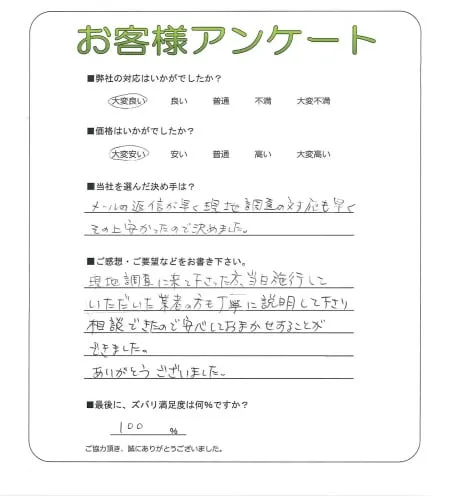 お客様アンケート
■弊社の対応はいかがでしたか？
大変良い 良い 普通 不満 大変不満
■価格はいかがでしたか？
大変安い 安い 普通 高い 大変高い
■当社を選んだ決め手は？
メールの返信が早く現地調査の対応も早く
その上安かったので決めました。
■ご感想・ご要望などをお書き下さい。
現地調査に来て下さった方、当日施行して
いただいた業者の方も丁寧に説明して下さり
相談できたので安心しておまかせすることが
できました。
ありがとうございました。
■最後に、ズバリ満足度は何%ですか？
100 %
ご協力頂き、誠にありがとうございました。